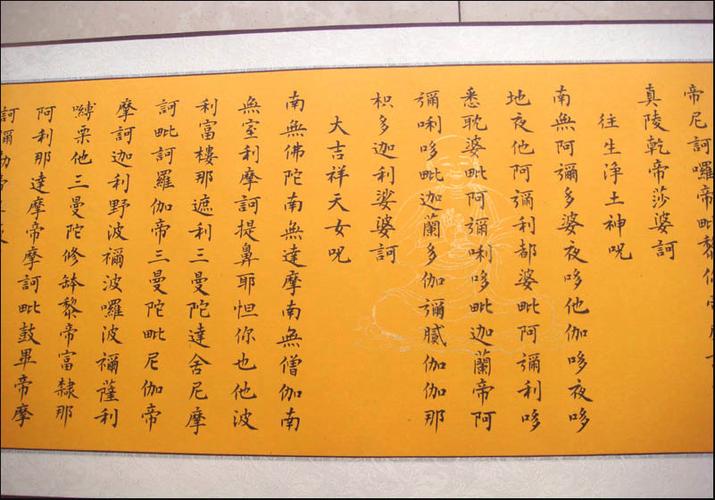 帝尼訶囉帝毗黎你帝摩
真陵乾帝莎婆訶
往生淨土神咒
南無阿彌多婆夜哆他伽哆夜哆
地夜他阿彌利都婆毗阿彌利哆
悉耽婆毗阿彌唎哆毗迦蘭帝阿
彌唎哆毗迦蘭多伽彌膩伽伽那
枳多迦利娑婆訶
大吉祥天女呪
南無佛陀南無達摩南無僧伽南
無室利摩訶提鼻耶怛你也他波
利富樓那遮利三曼陀達舍尼摩
訶毗訶羅伽帝三曼陀毗尼伽帝
摩訶迦利野波禰波囉波禰薩利
嚩栗他三曼陀修鉢黎帝富隸那
阿利那達摩帝摩訶毗鼓畢帝摩
訶彌勒帝